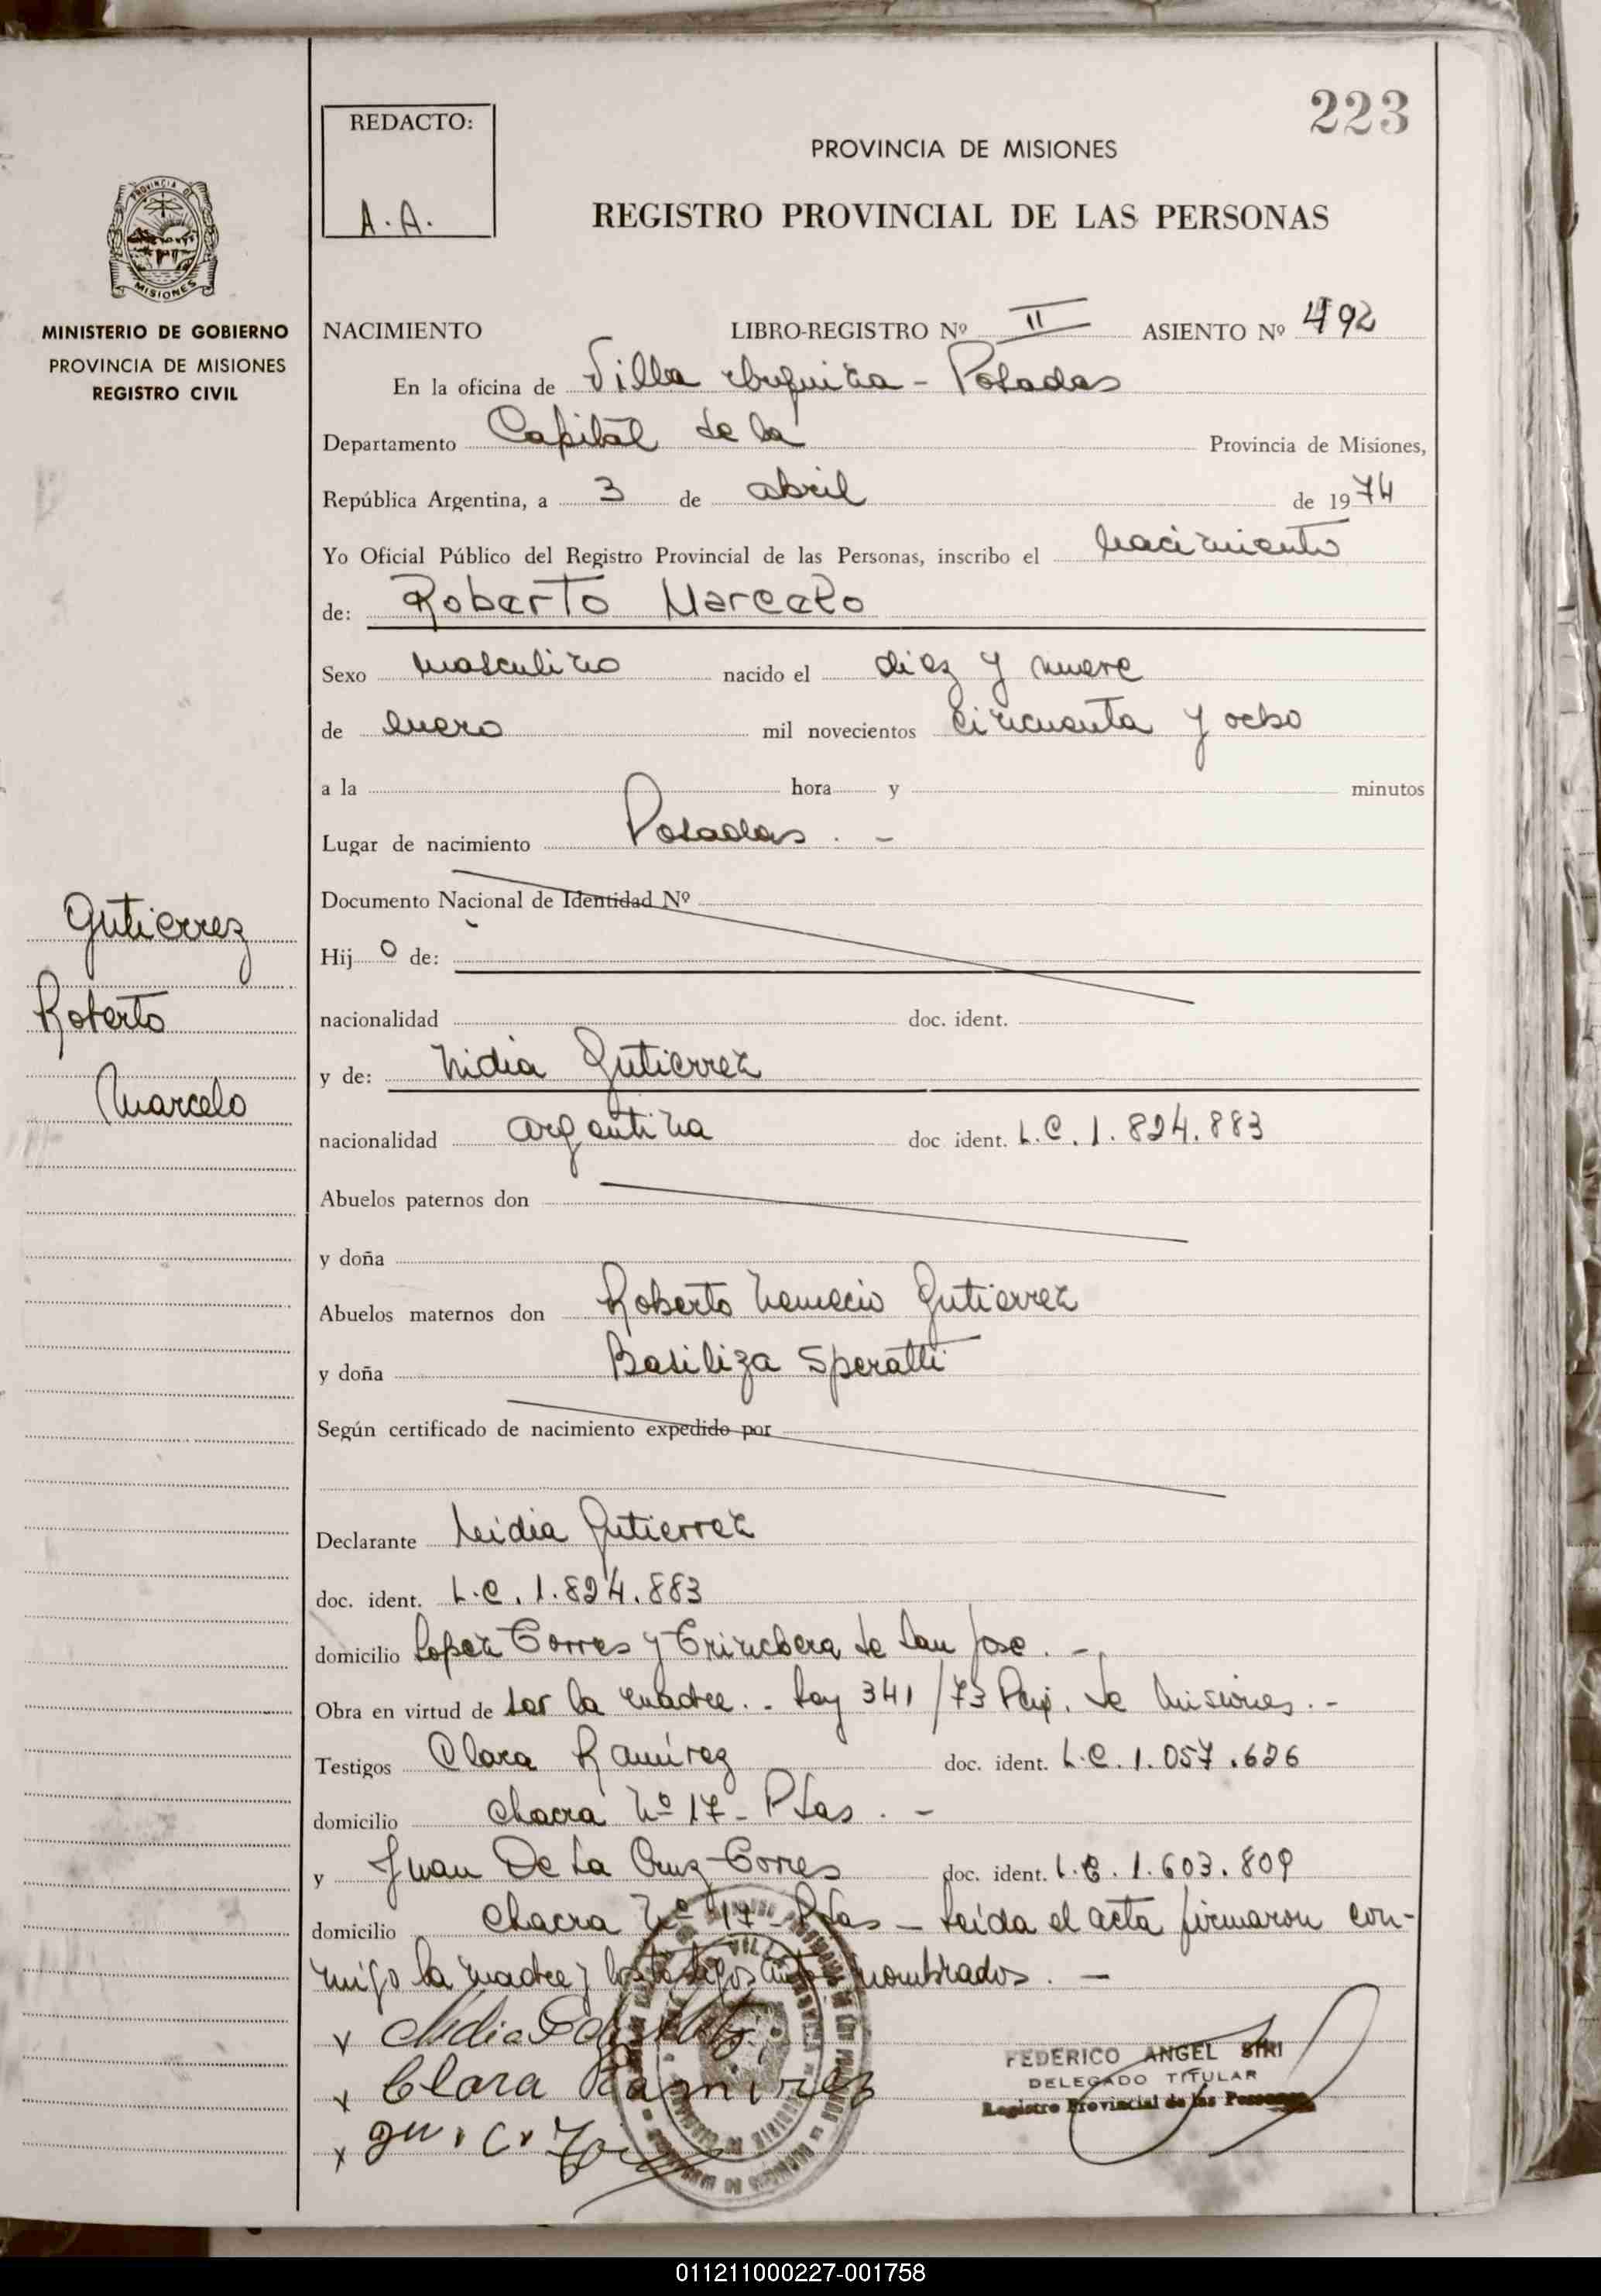 223
REDACTO:
A.A.
PROVINCIA DE MISIONES
REGISTRO PROVINCIAL DE LAS PERSONAS
PROVINCIA DE
MISIONES
MINISTERIO DE GOBIERNO
PROVINCIA DE MISIONES
REGISTRO CIVIL
NACIMIENTO LIBRO-REGISTRO Nº II ASIENTO Nº 492
En la oficina de Villa Urquiza - Posadas
Departamento Capital de la Provincia de Misiones,
República Argentina, a 3 de abril de 1974
Yo Oficial Público del Registro Provincial de las Personas, inscribo el nacimiento
de: Roberto Marcelo
Sexo masculino nacido el diez y nueve
de enero mil novecientos cincuenta y ocho
a la hora y minutos
Lugar de nacimiento Posadas . -
Documento Nacional de Identidad Nº
Hij o de:
nacionalidad doc. ident.
y de: Nidia Gutierrez
nacionalidad argentina doc ident. L.C. 1.824.883
Abuelos paternos don
y doña
Abuelos maternos don Roberto Nemecio Gutierrez
y doña Basiliza Speratti
Según certificado de nacimiento expedido por
Declarante Nidia Gutierrez
doc. ident. L.C. 1.824.883
domicilio Lopez Torres y Trinchera de San Jose . -
Obra en virtud de ser la madre. - Ley 341/73 de Misiones. -
Testigos Clara Ramírez doc. ident. L.C. 1.057.626
domicilio chacra Nº 17 - Pdas . -
y Juan De La Cruz Torres doc. ident. L.E. 1.603.809
domicilio Chacra Nº 17 - Pdas - Leída el acta firmaron con-
migo la madre y los testigos nombrados. -
Clara Ramirez
FEDERICO ANGEL SIRI
DELEGADO TITULAR
Registro Provincial de las Personas
Gutierrez
Roberto
Marcelo
011211000227-001758